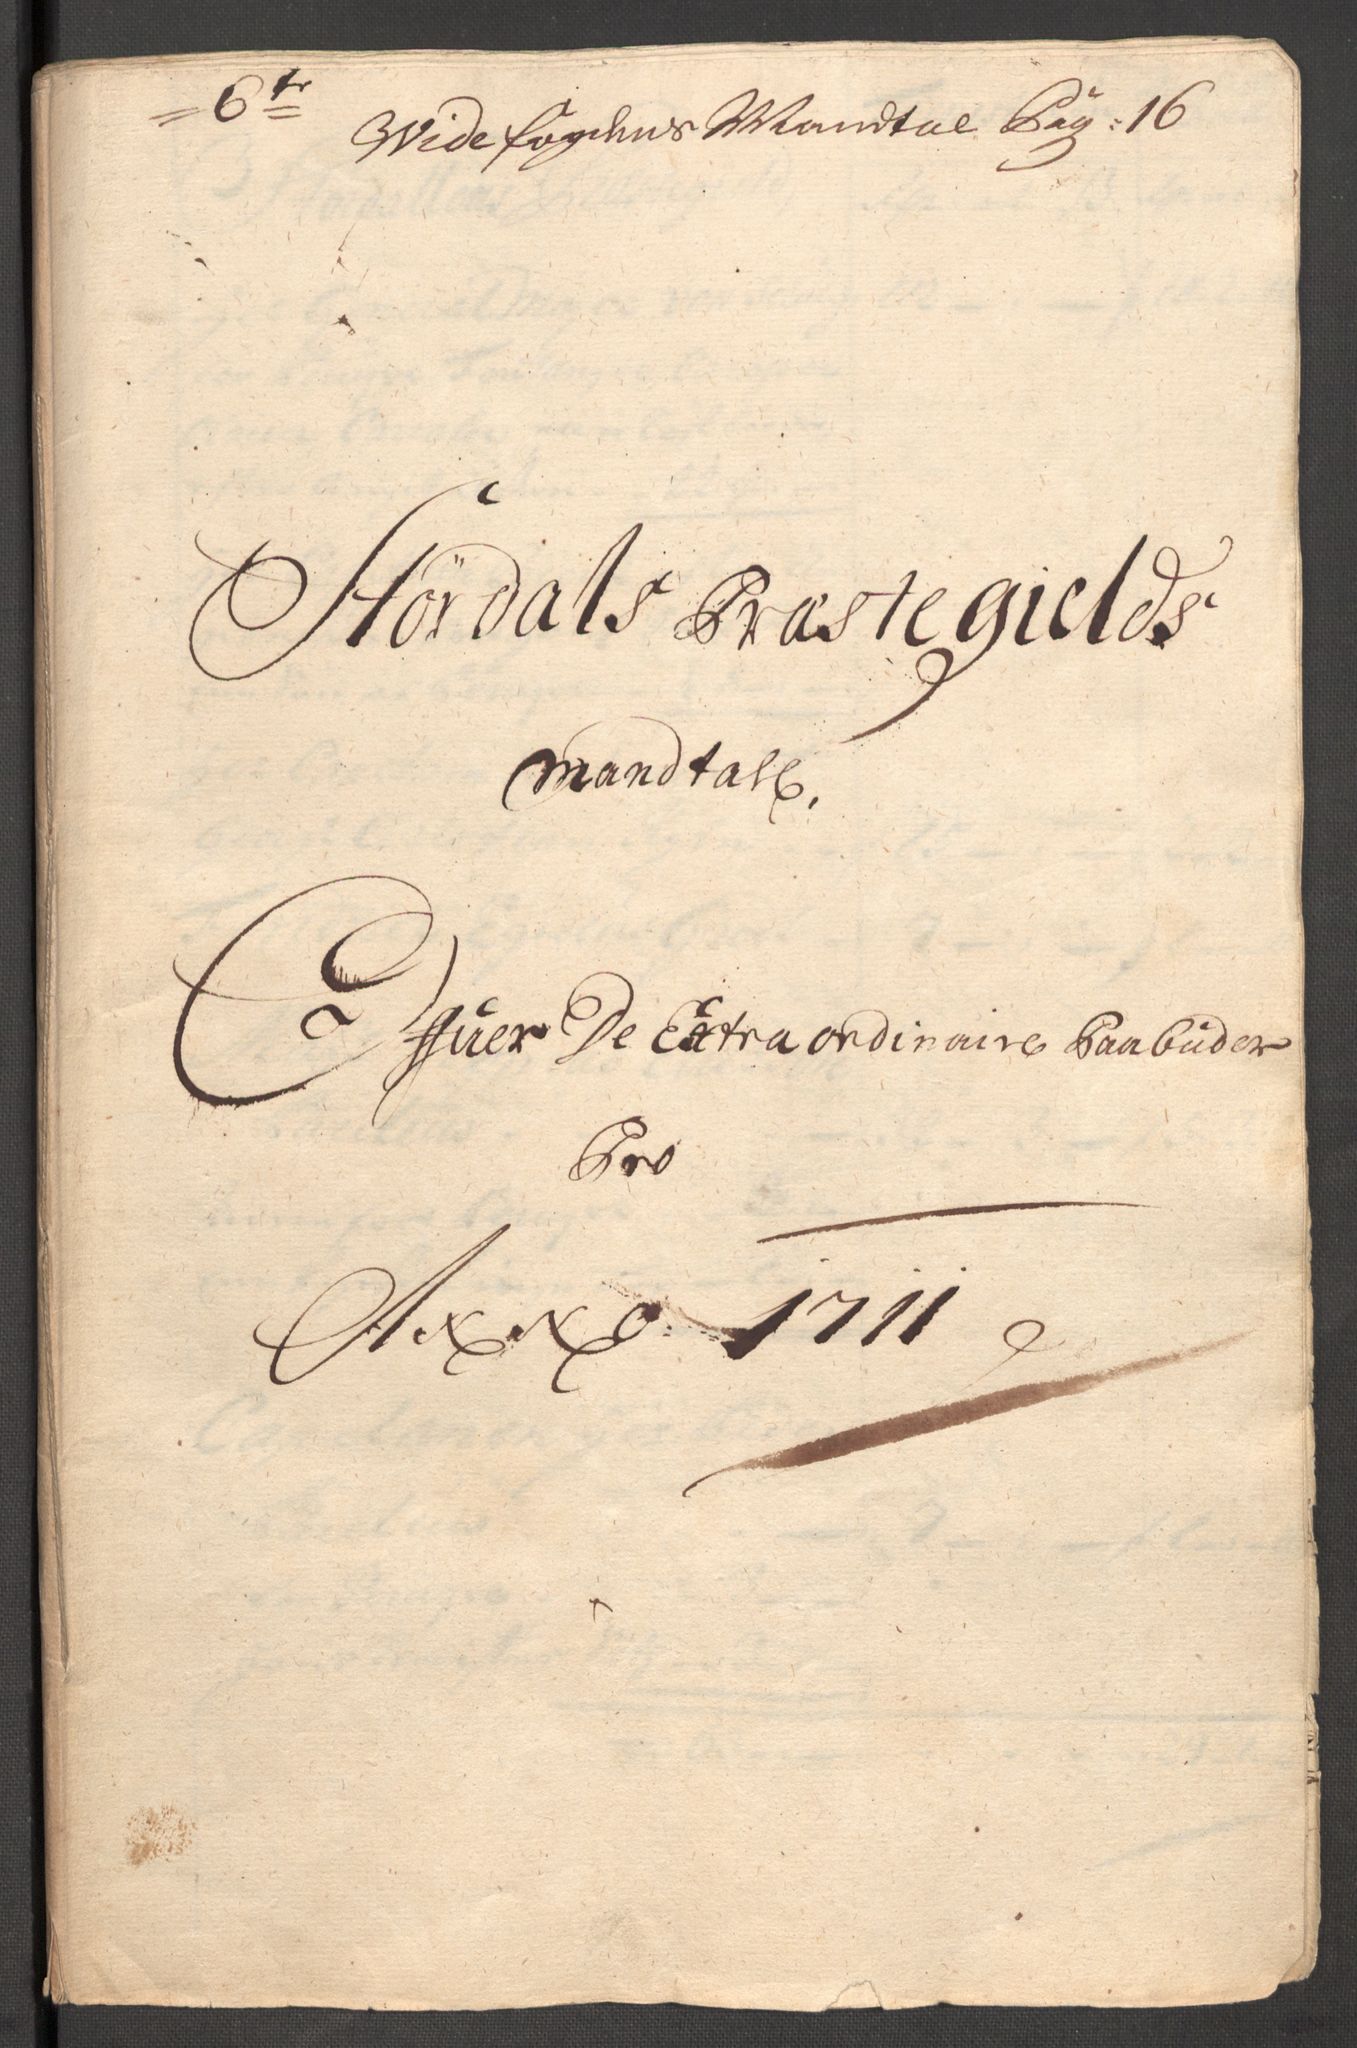 6te
Wide fogdens Mandtal Pag: 16
Stördals Præstegields
Mandtall,
Offuer De Extra ordinaire Paabuder
Pro
Anno 1711